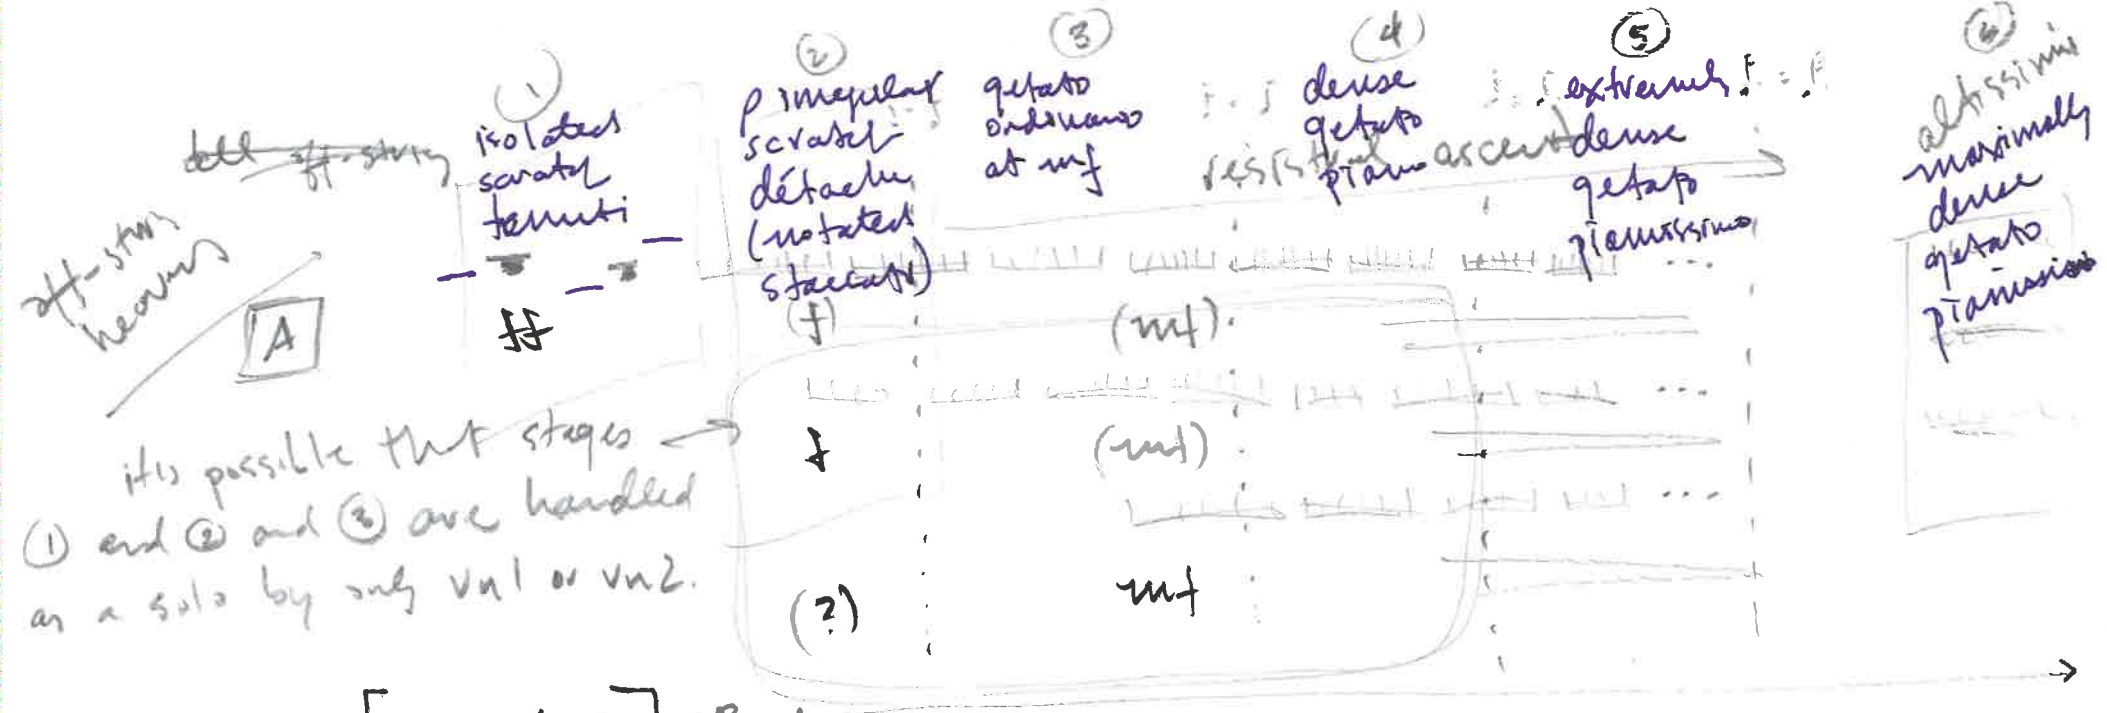 ①
isolated
scratch
tenuti
ff
②
p irregular
scratch
détaché
(notated
staccato)
(f)
f
(?)
③
getato
ordinario
at mf
(mf)
(mf)
mf
④
dense
getato
piano
registral ascent
⑤
extremely
dense
getato
pianissimo
...
...
...
⑥
altissimi
maximally
dense
getato
pianissimo
off-string
A
it is possible that stages
① and ② and ③ are handled
as a solo by only vn1 or vn2.